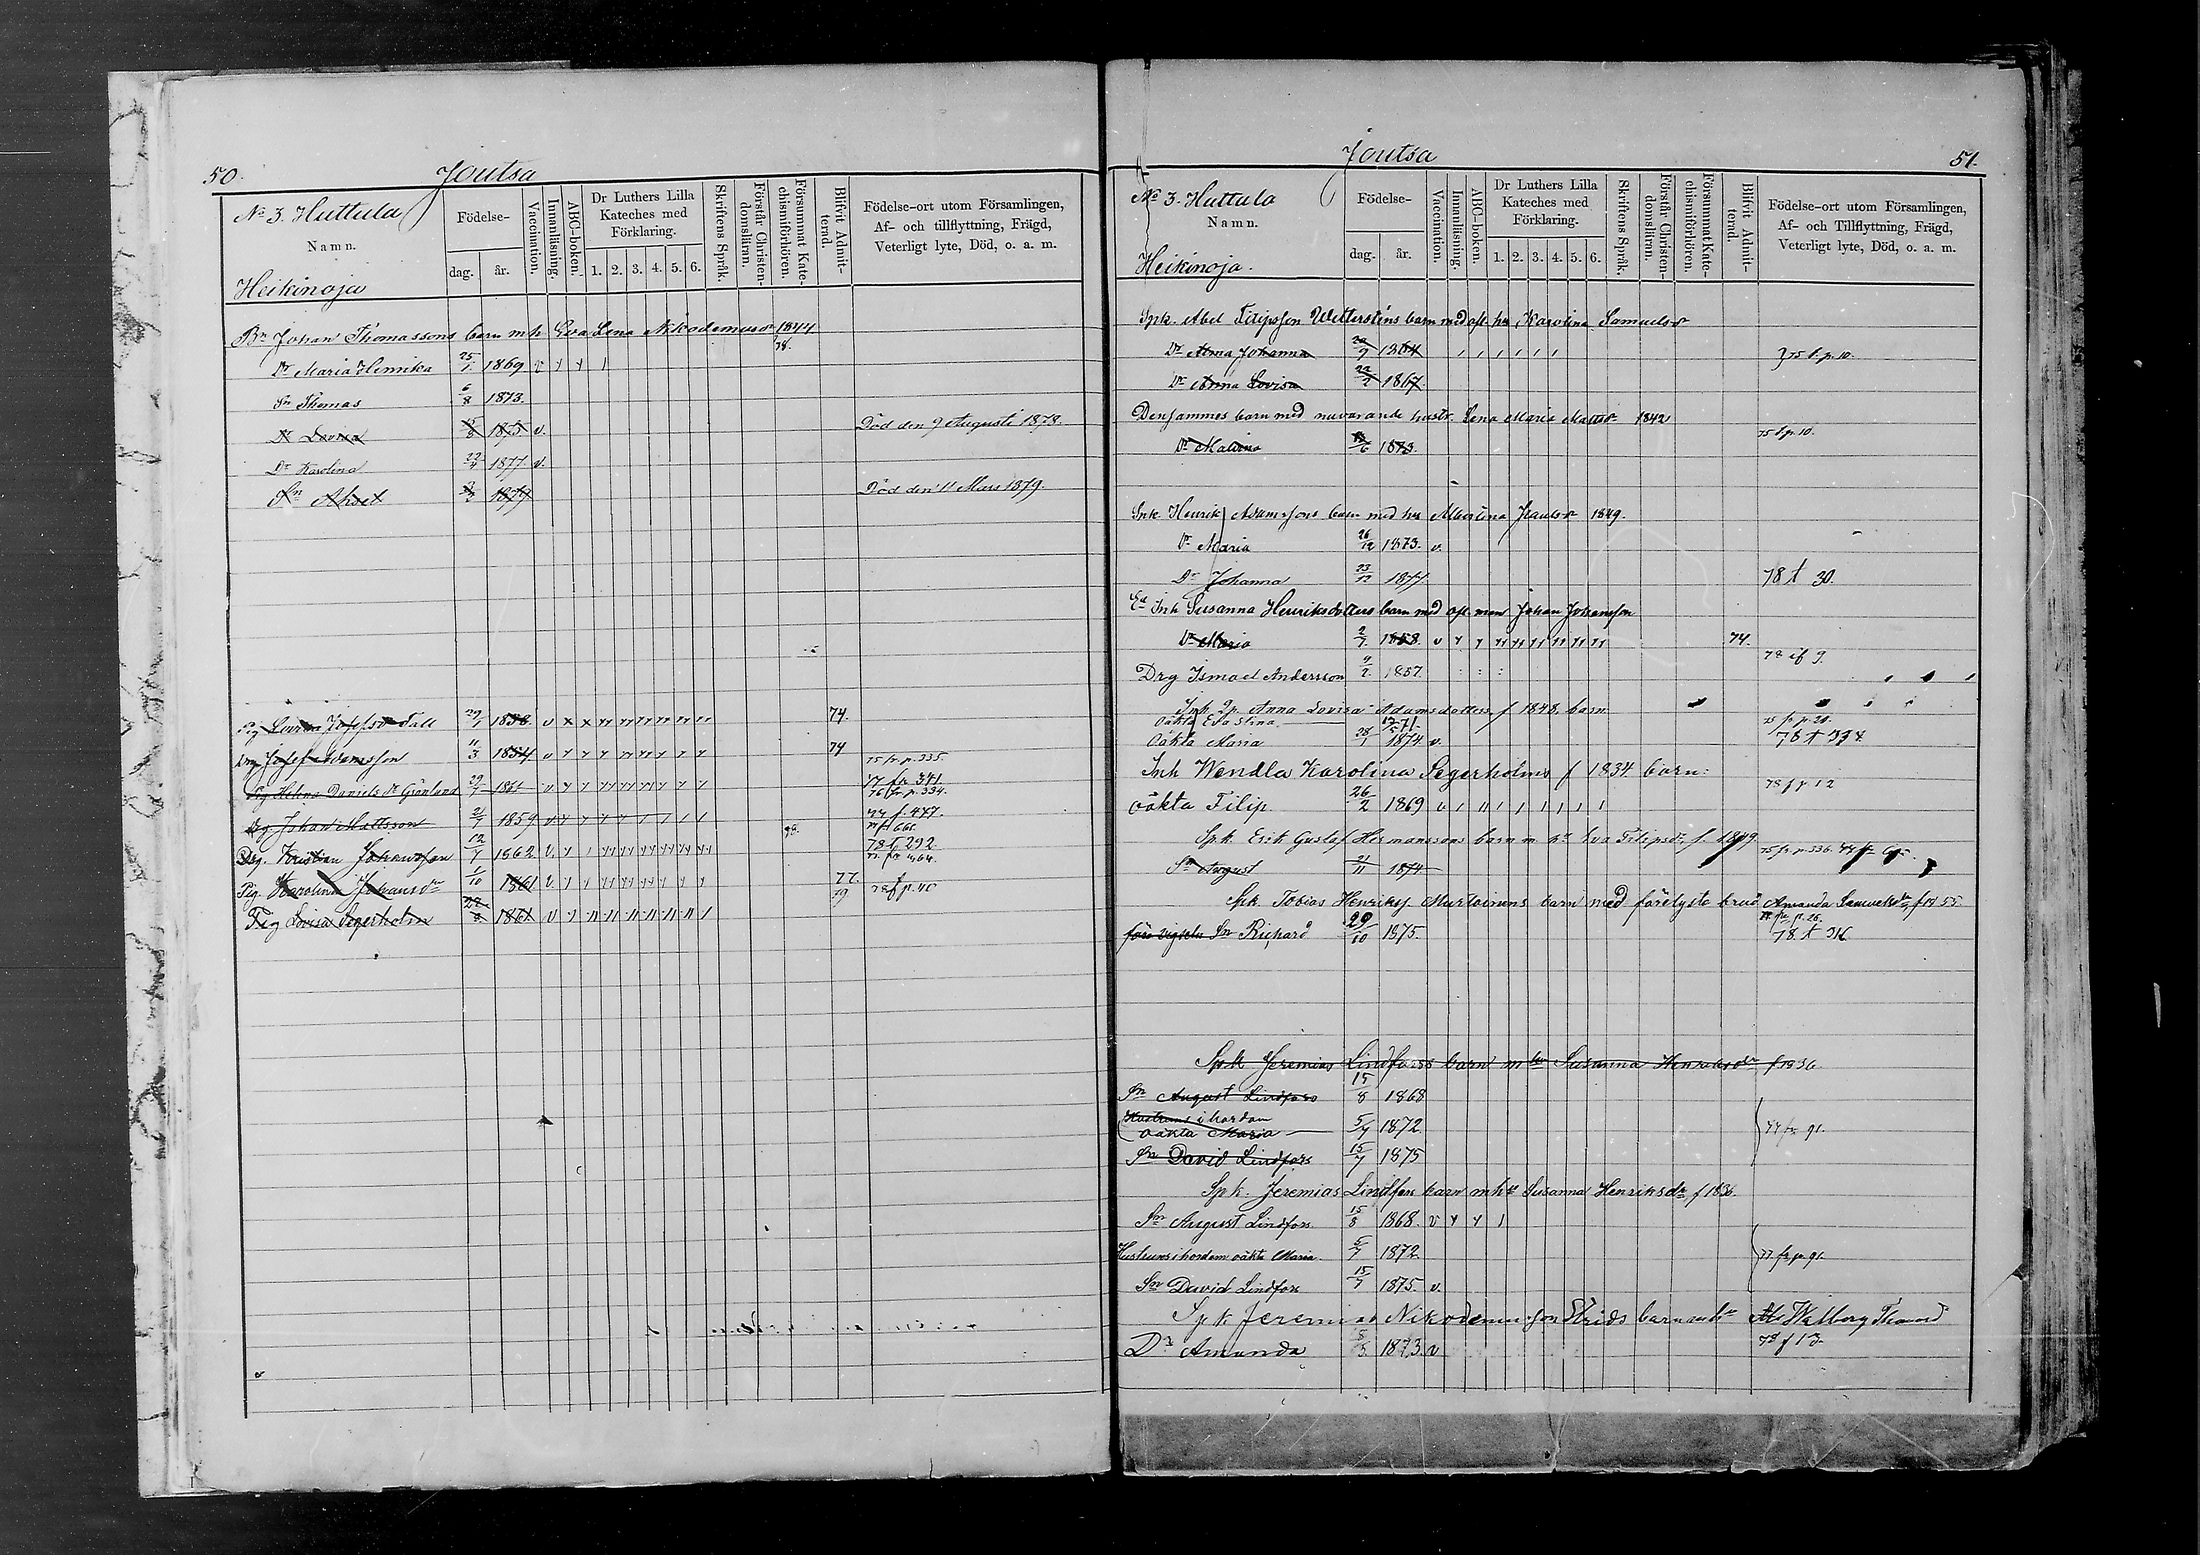 50.
Joutsa
No 3. Huttula
Namn.
Heikinoja
Födelse-
dag.
år.
Vaccination.
Innanläsning.
ABC-boken.
Dr Luthers Lilla
Kateches med
Förklaring.
1. 2. 3. 4. 5. 6.
Skriftens Språk.
Förstår Christen-
domsläran.
Försummat Kate-
chismiförhören.
Blifvit Admit-
terad.
Födelse-ort utom Församlingen,
Af- och tillflyttning, Frägd,
Veterligt lyte, Död, o. a. m.
Bn Johan Thomassons barn m h Eva Lena Nikodemusdr 1844
78.
Dr Maria Henrika 25/1 1869 v
Sn Thomas 6/8 1873.
Dr Lovisa 1875 v. Död den 9 Augusti 1878.
Dr Karolina 22/4 1877. v.
Sn 1879 Död den 11 Mars 1879.
Pig Lovisa Josefsdr Tall 29/1 1838 v 74.
Drg Josef Adamsson 11/3 1854 v 74 75 fr p. 335.
Pig Helena Daniels dr Grönlund 29/7 1861 v 77 fr 341
76 fr p. 334.
Drg Johan Mattsson 21/7 1859 v
Drg. Kristian Johansson 12/7 1862 v. 78 t 292
Pig Karolina Johansdr 1/10 1861 v 77. 78 f p. 40
79
Pig Lovisa Segerholm 1861 v
Joutsa
51.
No 3. Huttula
Namn.
Heikinoja.
Födelse-
dag.
år.
Vaccination.
Innanläsning.
ABC-boken.
Dr Luthers Lilla
Kateches med
Förklaring.
1. 2. 3. 4. 5. 6.
Skriftens Språk.
Förstår Christen-
domsläran.
Försummat Kate-
chismiförhören.
Blifvit Admit-
terad.
Födelse-ort utom Församlingen,
Af- och Tillflyttning, Frägd,
Veterligt lyte, Död, o. a. m.
Spk. Abel Filipsson Wetterstens barn med afl. hu Karolina Samuelsdr
Dr Alma Johanna 1864 75 t. p. 10.
Dr Anna Lovisa 22/2 1867
Densammes barn med nuvarande hustr. Lena Maria Mattsdr 1842
75 t p. 10.
Dr Malvina 1873.
Inh. Henrik Adamssons barn med hu Albertina Paulsdr 1849.
Dr Maria 26/12 1873. v.
Dr Johanna 23/12 1877. 78 t 30.
Ea Inh Susanna Henriksdotters barn med afl. man Johan Johansson
Dr Maria 2/7 1858. v 74.
Drg Ismael Andersson 1857. 78 if 9.
Inh. Qp. Anna Lovisa Adamsdotters f 1848. barn
Oäkta Eva Stina 71. 75 fr p. 20.
Oäkta Maria 28/1 1874. v. 78 t 334
Inh Wendla Karolina Segerholms f 1834 barn: 78 f p 12
oäkta Filip 26/2 1869 v
Spk. Erik Gustaf Hermanssons barn m. hu Eva Filipsdr f. 1849. 75 fr p. 336.
Sn August 21/11 1874
Spk Tobias Henriksson Murtoinens barn med förelyste brud Amanda Samuelsdr f 1855.
Sn Richard 29/10 1875. 78 t 316
Spk Jeremias Lindfors barn m hu Susanna Henriksdr f 1836
Sn August Lindfors 15/8 1868
Hustruns i hordom
oäkta Maria 5/7 1872 77 fr 91.
Sn David Lindfors 15/7 1875
Spk. Jeremias Lindfors barn m hu Susanna Henriksdr f 1836.
Sn August Lindfors 15/8 1868. v
Hustruns i hordom oäkta Maria 5/7 1872 77 fr p 91.
Sn David Lindfors 15/7 1875. v.
Spk Jeremias Nikodemusson Strids barn m hu Walborg
78 f 13
Dr Amanda 1873. v